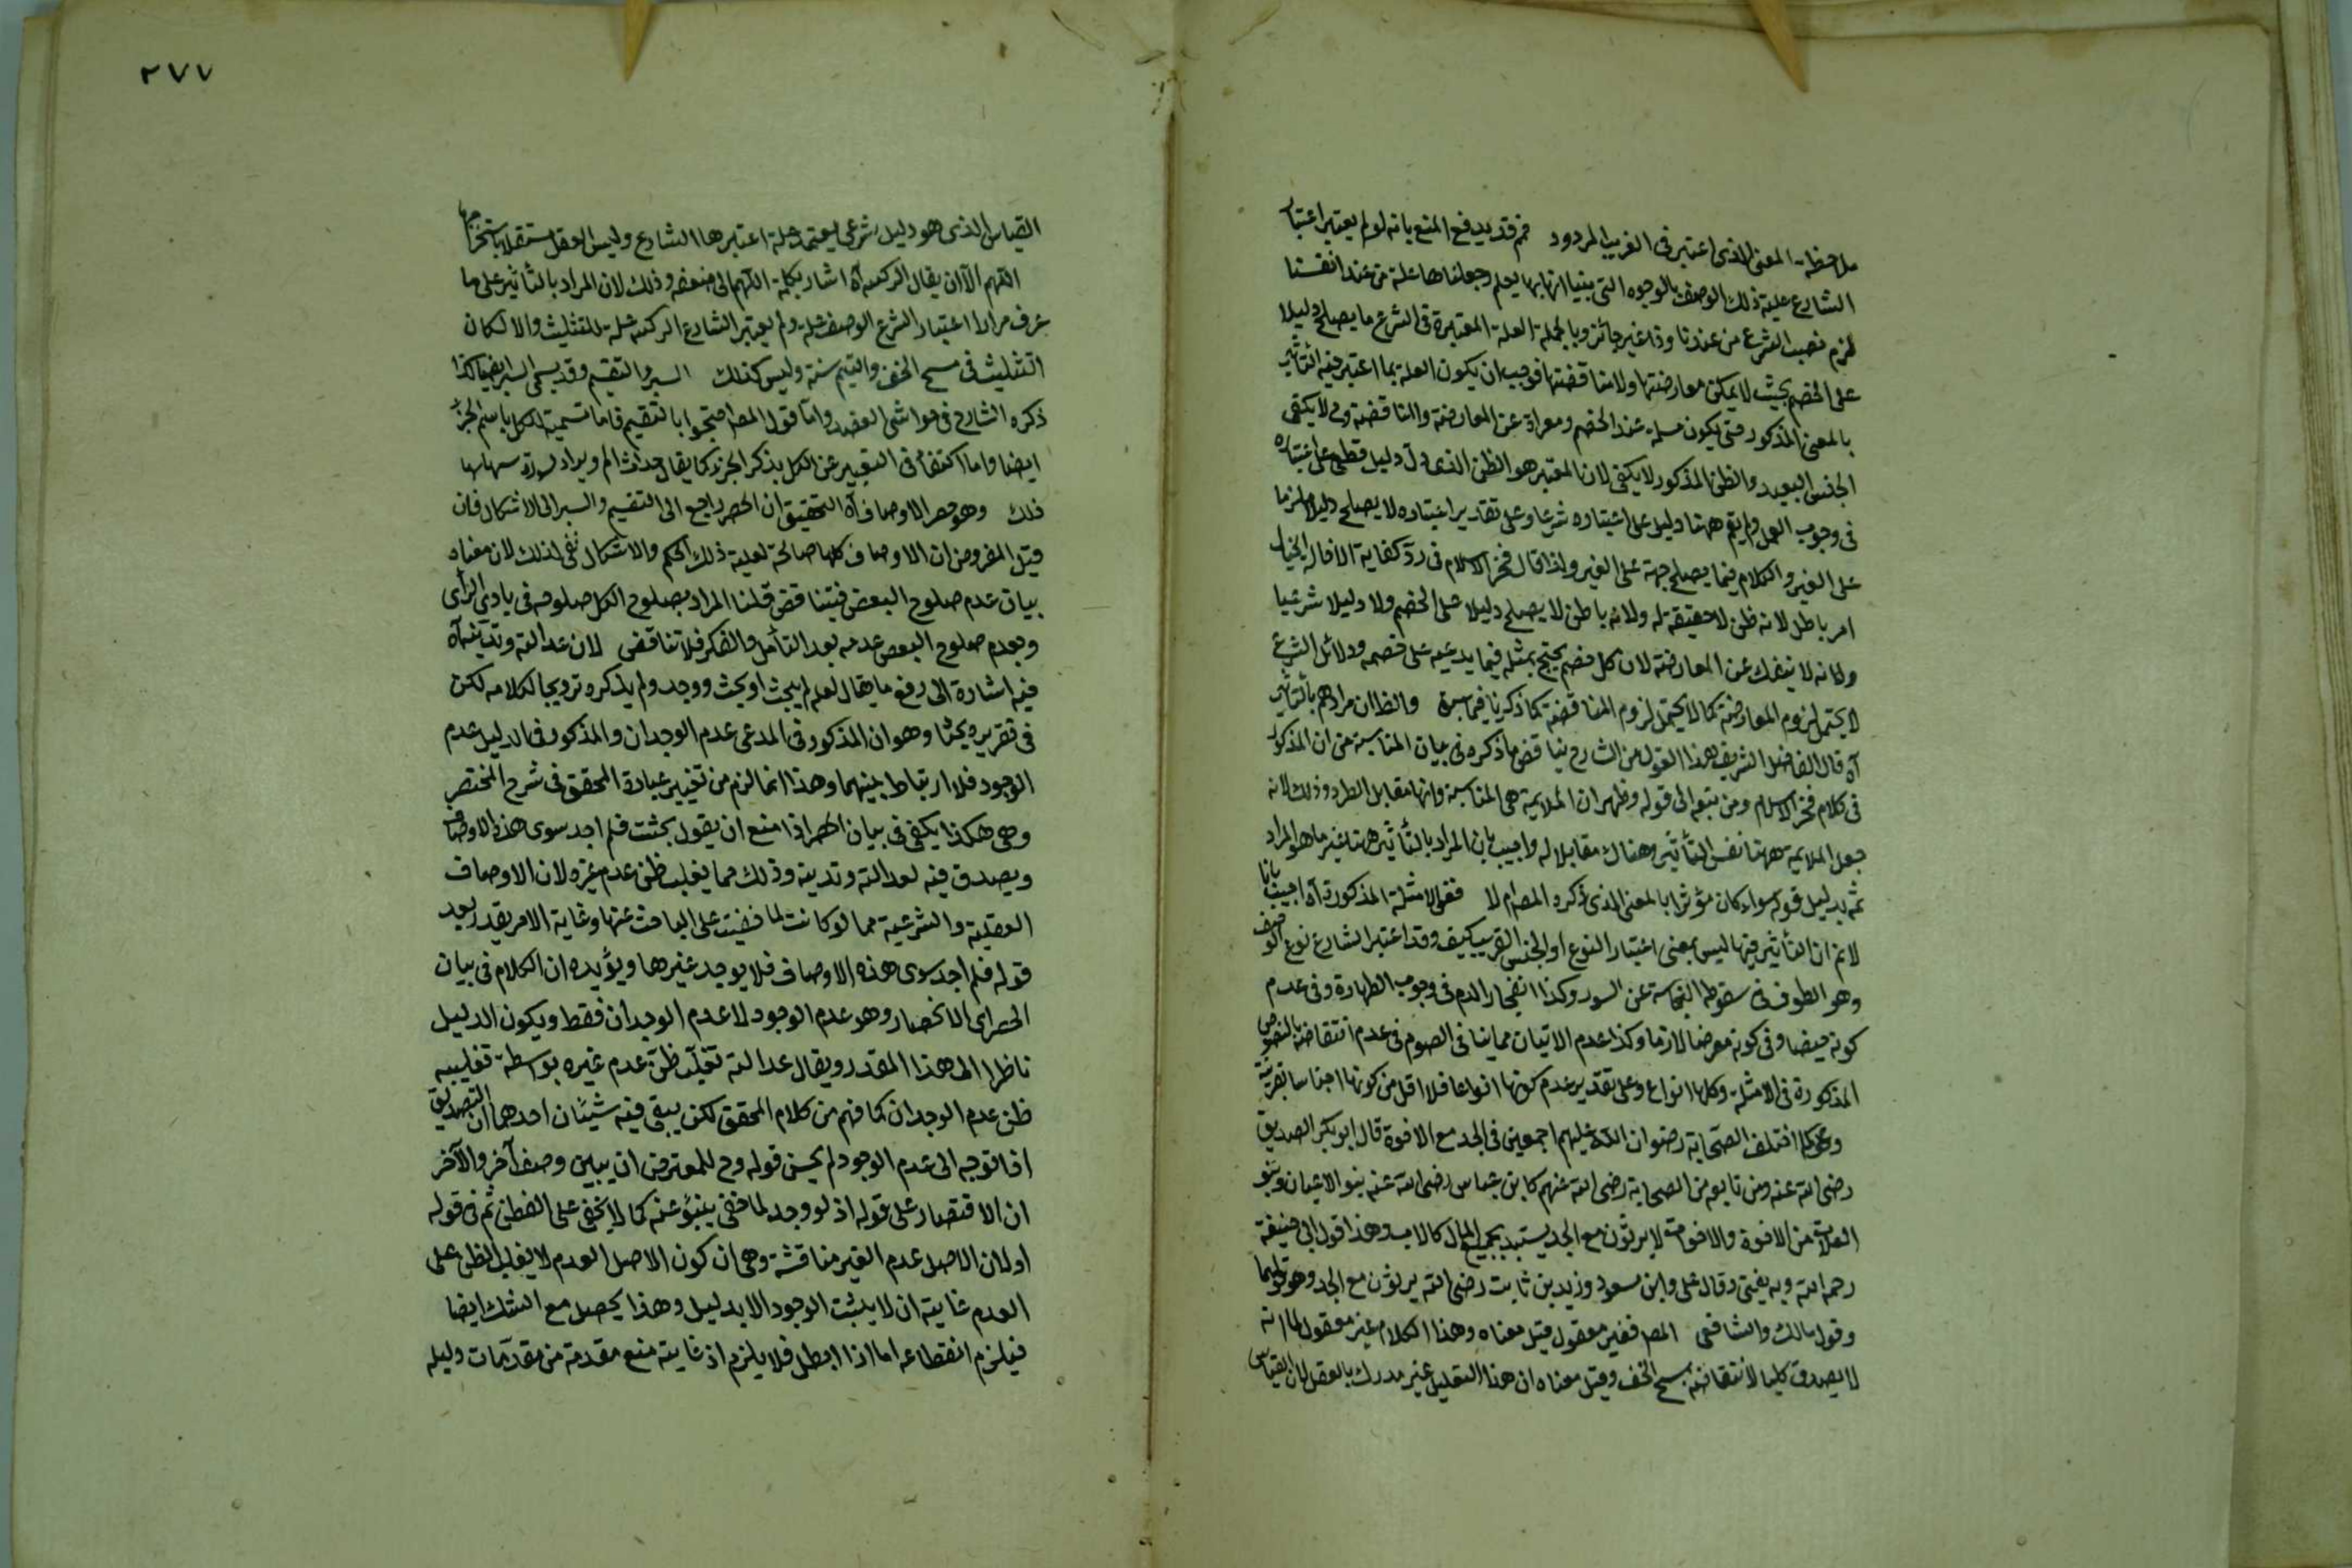 ملاحظة المعنى الذى اعتبر فى الغريب المردود ثم قد يدفع المنع بانه لو لم يعتبر اعتبار
الشارع علية ذلك الوصف بالوجوه التى بنيا انها بها يعلم وجعلناها علة من عند انفسنا
لزم نصب الشرع من عندنا وذا غير جائز وبالجملة العلة المعتبرة فى الشرع ما يصلح دليلا
على الخصم بحيث لا يمكن معارضتها ولا مناقضتها فوجب ان يكون العلة بما اعتبر فيه التأثير
بالمعنى المذكور حتى يكون مسلمة عند الخصم ومعراة عن المعارضة والمناقضة وح لا يكفى
الجنس البعيد والظن المذكور لا يكفى لان المعتبر هو الظن الذى دل دليل قطعى على اعتباره
فى وجوب العمل ولم يقم ههنا دليل على اعتباره شرعا وعلى تقدير اعتباره لا يصلح دليلا ملزما
على الغير والكلام فيما يصلح حجة على الغير ولذا قال فخر الاسلام فى رد كفاية الاخالة الخيال
امر باطل لانه ظن لا حقيقة له ولانه باطن لا يصلح دليلا على الخصم ولا دليلا شرعيا
ولانه لا ينفك عن المعارضة لان كل خصم يحتج بمثله فيما يدعيه على خصمه ودلائل الشرع
لا يحتمل لزوم المعارضة كما لا يحتمل لزوم المناقضة كما ذكرنا فيما سبق والظ ان مرادهم بالتأثير
آه قال الفاضل الشريف هذا القول من الشارح يناقض ما ذكره فى بيان المناسبة من ان المذكور
فى كلام فخر الاسلام ومن تبعه الى قوله وظهر ان الملايمة هى المناسبة وانها مقابل الطرد وذلك لانه
جعل الملايمة ههنا نفس التأثير وهناك مقابلا له واجيب بان المراد بالتأثير ههنا غير ما هو المراد
ثمه بدليل قوله سواء كان مؤثرا بالمعنى الذى ذكره المص ام لا ففى الامثلة المذكورة آه اجيب بانا
لانم ان التأثير فيها ليس بمعنى اعتبار النوع او الجنس القريب كيف وقد اعتبر الشارع نوع الوصف
وهو الطوف فى سقوط النجاسة عن السور وكذا انفجار الدم فى وجوب الطهارة وفى عدم
كونه حيضا وفى كونه مرضا لازما وكذا عدم الاتيان مما ينافى الصوم فى عدم انتقاضه بالنصوص
المذكورة فى الامثلة وكلها انواع وعلى تقدير عدم كونها انواعا فلا اقل من كونها اجناسا قريبة
وعن كما اختلف الصحابة رضوان الله عليهم اجمعين فى الجد مع الاخوة قال ابو بكر الصديق
رضى الله عنه ومن تابعه من الصحابة رضى الله عنهم كابن عباس رضى الله عنه بنو الاعيان وبنو
العلات من الاخوة والاخوات لا يرثون مع الجد يستبد بجميع المال كالاب وهذا قول ابى حنيفة
رحمه الله وبه يفتى وقال على وابن مسعود وزيد بن ثابت رضى الله يرثون مع الجد وهو قولهما
وقول مالك والشافعى المص فغير معقول قيل معناه وهذا الكلام غير معقول لما انه
لا يصدق كليا لانتقاضه بمسح الخف وقيل معناه ان هذا التعليل غير مدرك بالعقل لان القياس
٢٧٧
القياس الذى هو دليل شرعى يعتمد علة اعتبرها الشارع وليس العقل مستقلا باستخراجها
اللهم الا ان يقال الركنية آه اشار بكلمة اللهم الى ضعفه وذلك لان المراد بالتأثير على ما
عرف مرارا اعتبار الشرع الوصف علة ولم يعتبر الشارع الركنية علة للتثليث والا لكان
التثليث فى مسح الخف والتيمم سنة وليس كذلك السبر والتقسيم وقد يسمى السبر ايضا كذا
ذكره الشارح فى حواشى العضد واما قول المص احتجوا بالتقسيم فاما تسمية الكل باسم الجزء
ايضا واما اكتفاء فى التعبير عن الكل بذكر الجزء كما يقال الم ويراد
ذلك وهو حصر الاوصاف آه التحقيق ان الحصر راجع الى التقسيم والسبر الى الاشكال فان
قيل المفروض ان الاوصاف كلها صالحة لعلية ذلك الحكم والاشكال نفى لذلك لان معناه
بيان عدم صلوح البعض فيتناقض قلنا المراد بصلوح الكل صلوحه فى بادى الرأى
وبعدم صلوح البعض عدمه بعد التأمل والفكر فلا تناقض لان عدالته وتدينه آه
فيه اشارة الى رفع ما يقال لعله لم يبحث او بحث ووجد ولم يذكره ترويجا لكلامه لكن
فى تقريره بحثا وهو ان المذكور فى المدعى عدم الوجدان والمذكور فى الدليل عدم
الوجود فلا ارتباط بينهما وهذا انما لزم من تغيير عبارة المحقق فى شرح المختصر
وهى هكذا يكفى فى بيان الحصر اذا منع ان يقول بحثت فلم اجد سوى هذه الاوصاف
ويصدق فيه لعدالته وتدينه وذلك مما يغلب ظن عدم غيره لان الاوصاف
العقلية والشرعية مما لو كانت لما خفيت على الباحث عنها وغاية الامر يقدر بعد
قوله فلم اجد سوى هذه الاوصاف فلا يوجد غيرها ويؤيده ان الكلام فى بيان
الحصر اى الانحصار وهو عدم الوجود لا عدم الوجدان فقط ويكون الدليل
ناظرا الى هذا المقدر ويقال عدالته تغلب ظن عدم غيره بواسطة تغليبه
ظن عدم الوجدان كما فهم من كلام المحقق لكن يبقى فيه شيئان احدهما ان التصديق
اذا توجه الى عدم الوجود لم يحسن قوله وح للمعترض ان يبين وصف آخر والآخر
ان الاقتصار على قوله اذ لو وجد لما خفى ينبؤ عنه كما لا يخفى على الفطن ثم فى قوله
او لان الاصل عدم الغير مناقشة وهى ان كون الاصل العدم لا يغلب الظن على
العدم غايته ان لا يثبت الوجود الا بدليل وهذا يحصل مع الشك ايضا
فيلزم انقطاعه اما اذا ابطل فلا يلزم اذ غايته منع مقدمة من مقدمات دليله